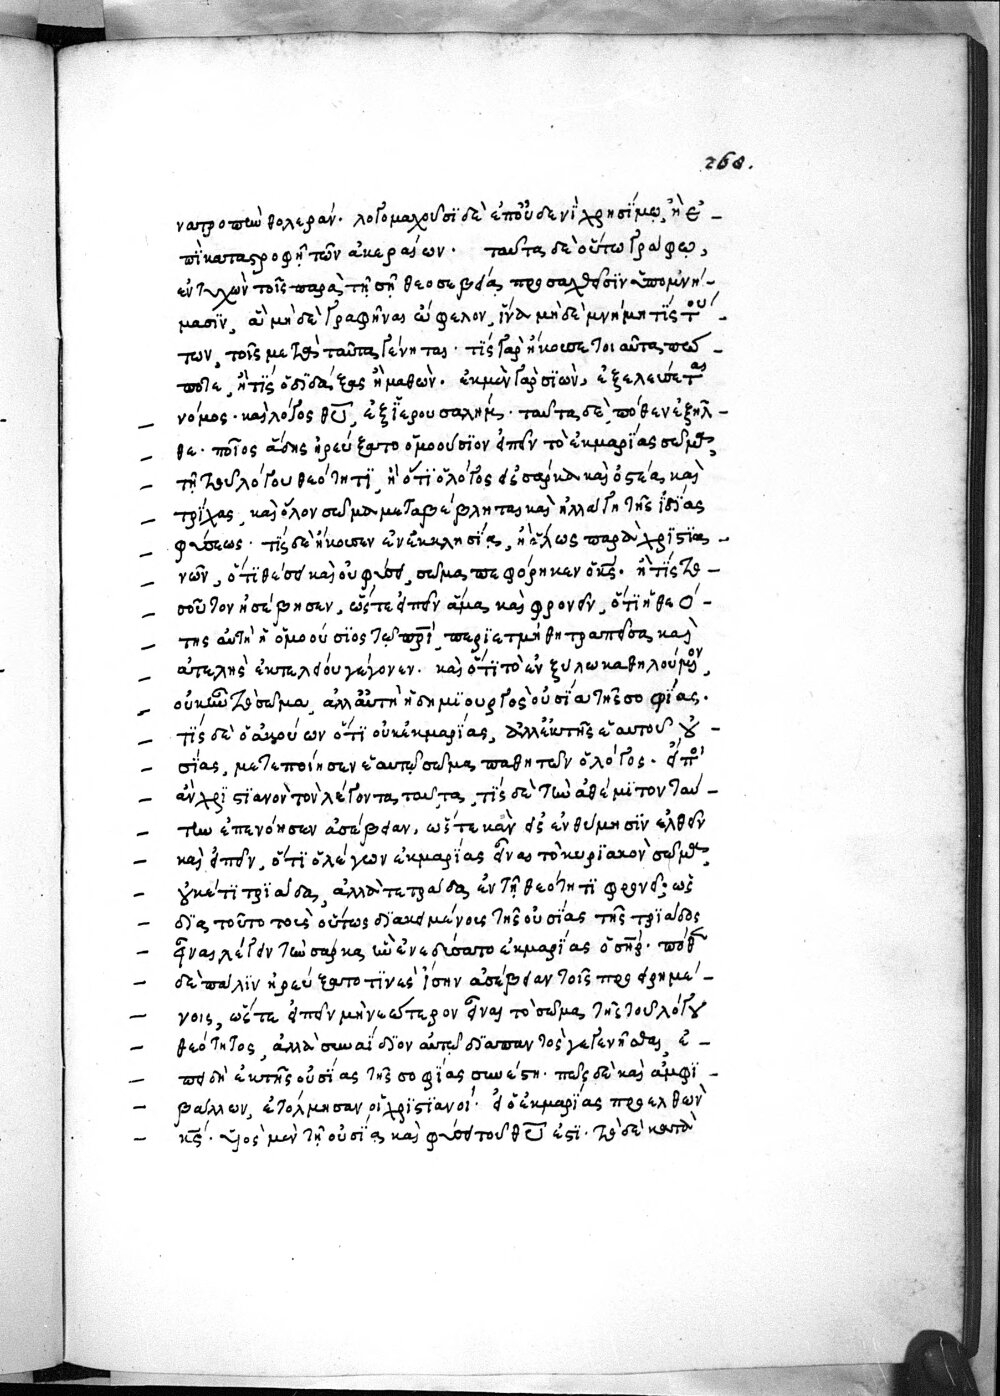 268.
νατροπὴν θολεράν. λογομαχοῦσϊ δὲ ἐπουδενὶ χρησΐμῳ, ἢ ἐ-
πὶ καταστροφῇ τῶν ἀκεραίων. ταῦτα δὲ οὕτω γράφω,
ἐντυχὼν τοῖς παρὰ τῇ σῇ θεοσεβείᾳ προσαχθεῖσϊν ὑπομνή-
μασϊν, ἃ μὴ δὲ γραφῆναι ὤφελον, ἵνα μὴ δὲ μνήμη τίς τού-
των, τοῖς μετὰ ταῦτα γένηται. τίς γὰρ ἤκουσε τοιαῦτα πώ-
ποτε, ἢ τίς ὁ διδάξας ἢ μαθών. ἐκ μὲν γὰρ σϊὼν, ἐξελεύσεται
νόμος. καὶ λόγος θυ, ἐξ ἱερουσαλήμ. ταῦτα δὲ, πόθεν ἐξῆλ-
θε. ποῖος ᾅδης ἠρεύξατο ὁμοούσϊον εἰπεῖν τὸ ἐκ μαρίας σῶμα,
τῇ τοῦ λόγου θεότητι, ἢ ὅτϊ ὁ λόγος εἰς σάρκα καὶ ὀστέα καὶ
τρίχας, καὶ ὅλον σῶμα μεταβέβληται καὶ ἠλλάγη τῆς ἰδίας
φύσεως. τίς δὲ ἤκουσεν ἐν ἐκκλησίᾳ, ἢ ὅλως παρὰ χρϊστϊα-
νῶν, ὅτϊ θέσει καὶ οὐ φύσει, σῶμα πεφόρηκεν ὁ κς. ἢ τίς το-
σοῦτον ἠσέβησεν, ὥστε εἰπεῖν ἅμα καὶ φρονεῖν, ὅτϊ ἡ θεό-
της αὐτὴ ἡ ὁμοούσϊος τῷ πρϊ, περϊετμήθη τραπεῖσα, καὶ
ἀτελὴς ἐκ τελείου γέγονεν. καὶ ὅτϊ τὸ ἐν ξύλω καθηλούμενον,
οὐκ ἦν τὸ σῶμα, ἀλλ᾽ αὐτὴ ἡ δημϊουργὸς οὐσία τῆς σοφίας.
τίς δὲ ὁ ἀκούων ὅτϊ οὐκ ἐκ μαρίας, ἀλλ᾽ ἐκ τῆς ἑαυτοῦ οὐ-
σίας, μετεποίησεν ἑαυτῷ σῶμα παθητὸν ὁ λόγος. εἴποι
ἂν χρϊστϊανὸν τὸν λέγοντα ταῦτα, τίς δὲ τὴν ἀθέμϊτον ταύ-
την ἐπενόησεν ἀσέβειαν, ὥστε κἂν εἰς ἐνθύμησϊν ἐλθεῖν
καὶ εἰπεῖν, ὅτϊ ὁ λέγων ἐκ μαρίας εἶναι τὸ κυρϊακὸν σῶμα,
οὐκέτϊ τρϊάδα, ἀλλὰ τετράδα ἐν τῇ θεότητϊ φρονεῖ; ὡς
δϊα τοῦτο τοὺς οὕτως δϊακειμένους τῆς οὐσίας τῆς τρϊάδος
εἶναι λέγειν τὴν σάρκα, ἣν ἐνεδύσατο ἐκ μαρίας ὁ σηρ. πόθεν
δὲ πάλϊν ἠρεύξαντό τϊνες ἴσην ἀσέβειαν τοῖς προειρημέ-
νοις, ὥστε εἰπεῖν μὴ νεώτερον εἶναι τὸ σῶμα τῆς τοῦ λόγου
θεότητος, ἀλλὰ συναΐδϊον αὐτῷ δϊαπαντὸς γεγενῆσθαι, ἐ-
πειδὴ ἐκ τῆς οὐσίας τῆς σοφίας συνέστη. πῶς δὲ καὶ ἀμφϊ-
βάλλειν, ἐτόλμησαν οἱ χρϊστϊανοί. εἰ ὁ ἐκ μαρίας προελθὼν
κς. υἱὸς μὲν τῇ οὐσίᾳ καὶ φύσει τοῦ θυ ἐστϊ. τὸ δὲ κατὰ